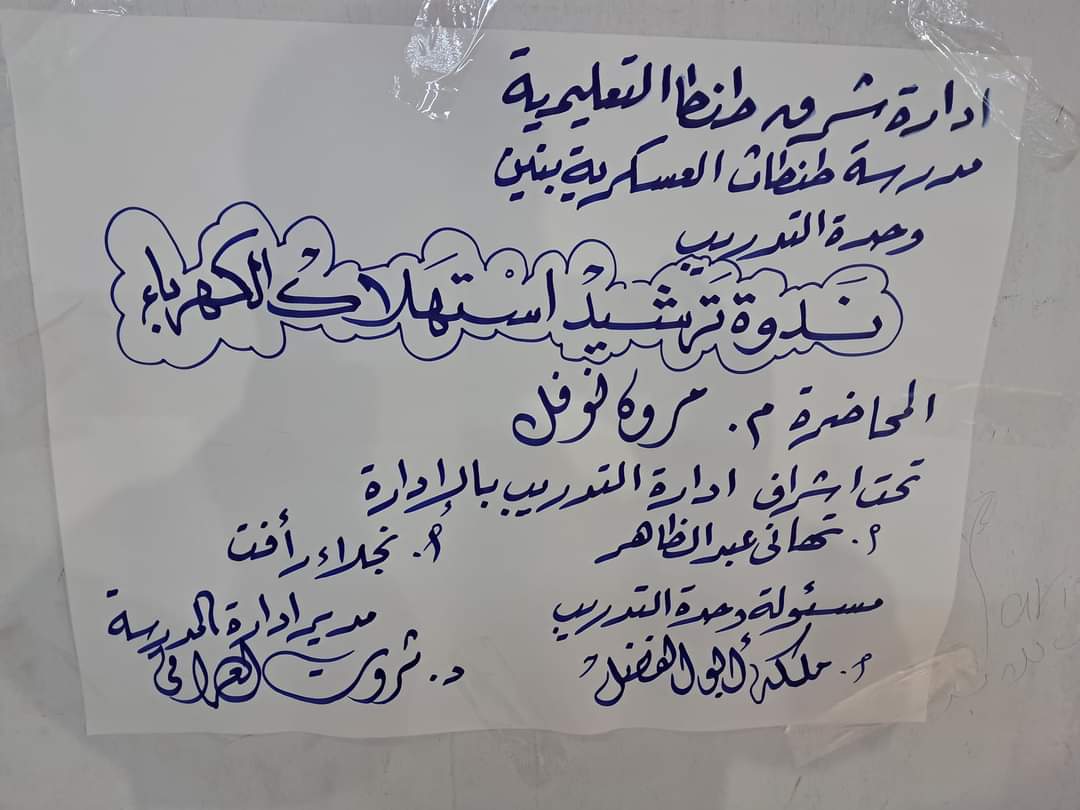 ادارة شرق طنطا التعليمية
مدرسة طنطاث العسكرية بنين
وحدة التدريب
نَدوة تَرشيدْ اسْتهَلاكْ الكهرباء
المحاضرة م. مروه نوفل
تحت اشراف ادارة التدريب بالإدارة
أ. تهانى عبد الظاهر
أ. نجلاء رأفت
مسئولة وحدة التدريب
مدير ادارة المدرسة
أ. ملكة أبو الفضل
د. ثروت العراقى